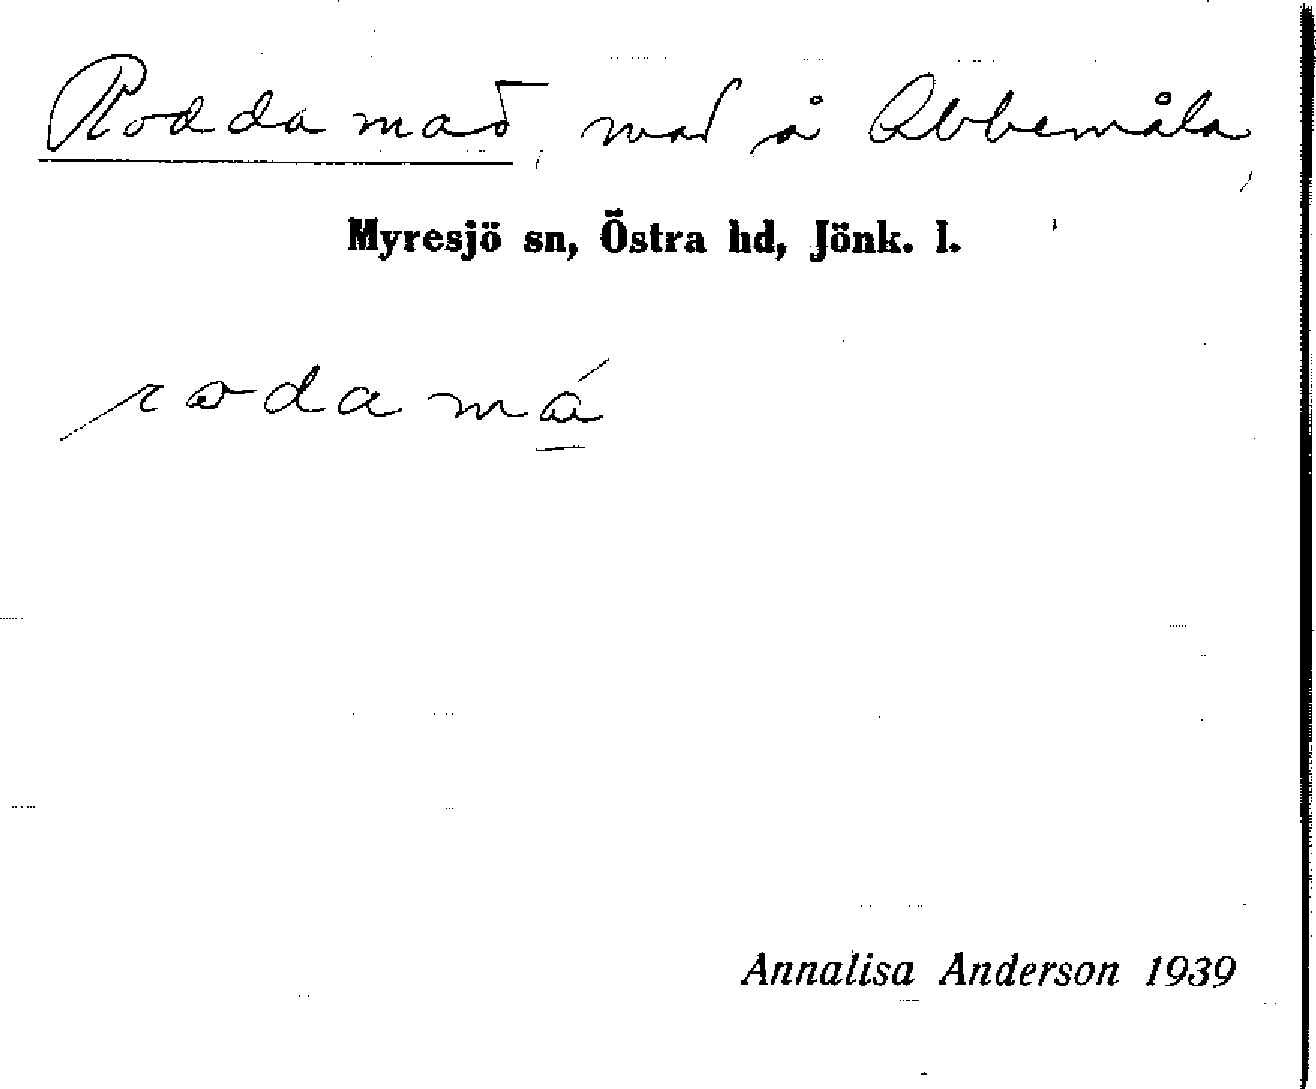 Roddamad, mad å Abbemåla,
Myresjö sn, Östra hd, Jönk. l.
rodamá
Annalisa Anderson 1939